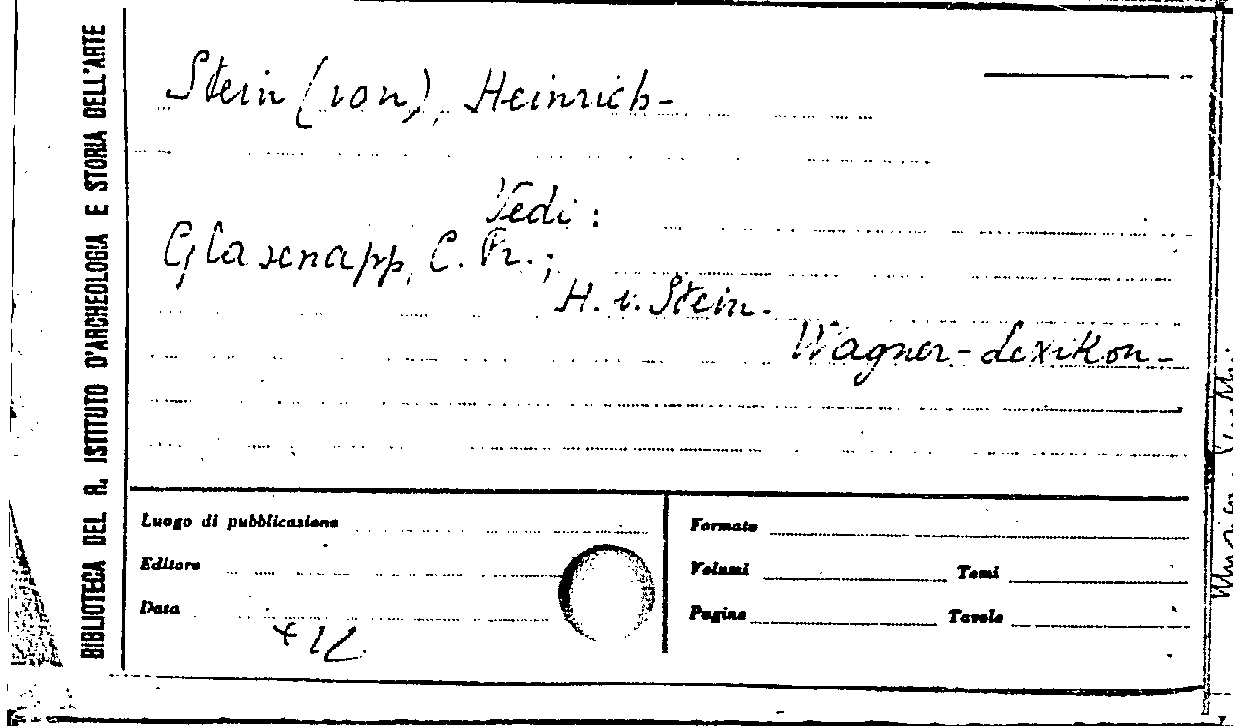 BIBLIOTECA DEL R. ISTITUTO D'ARCHEOLOGIA E STORIA DELL'ARTE
Stein (von), Heinrich-
Vedi :
Glasenapp, C. Fr.;
H. v. Stein.
Wagner-Lexikon-
Luogo di pubblicazione
Editore
Data
Formato
Volumi Tomi
Pagine Tavole